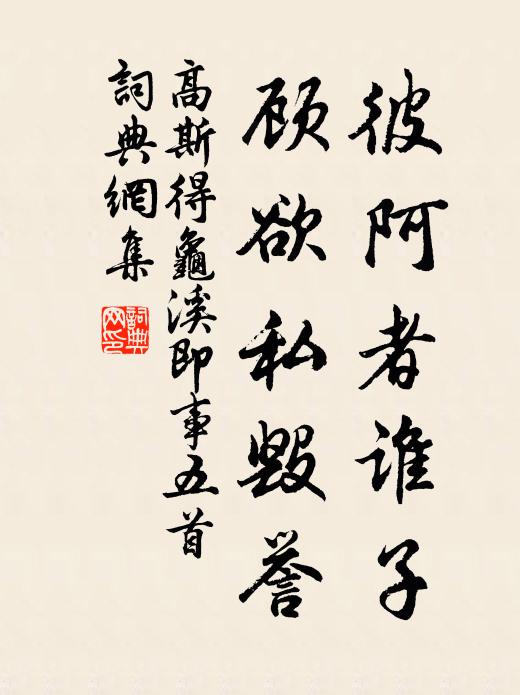 彼阿者谁子
顾欲私毁誉
高斯得龜溪即事五首
詞典網集
詞典网印